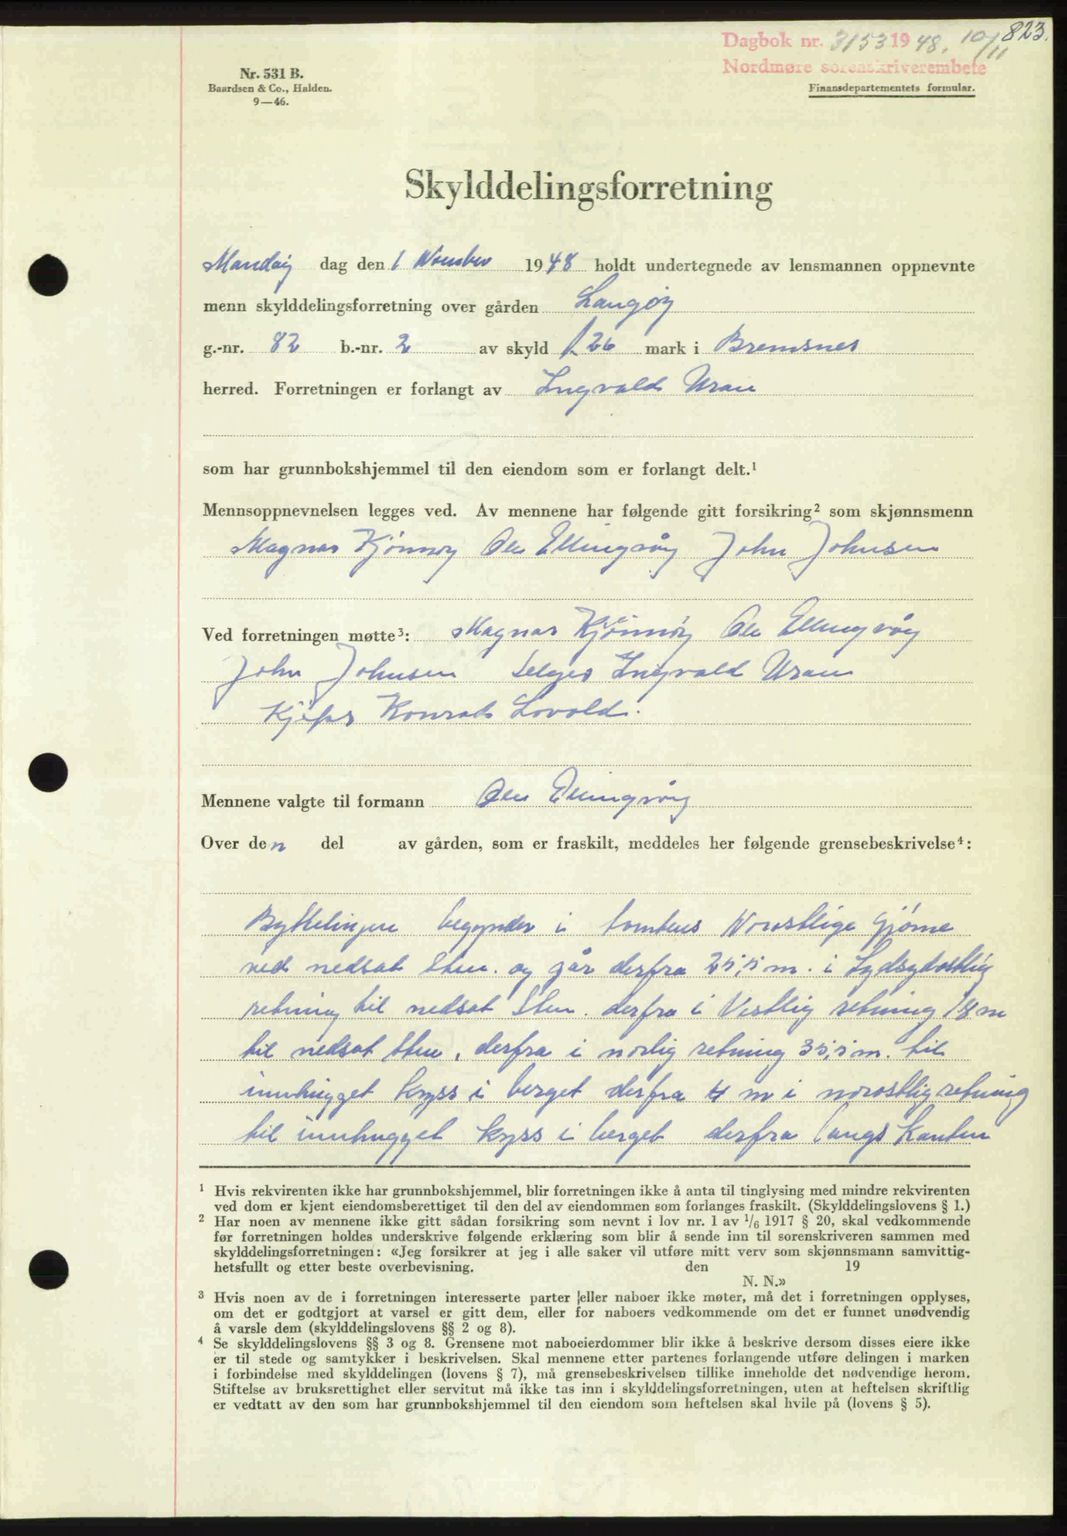 823.
Dagbok nr. 3153 1948. 10/11
Nordmøre sorenskriverembete
Nr. 531 B.
Baardsen & Co., Halden.
9—46.
Finansdepartementets formular.
Skylddelingsforretning
Mandag dag den 1 November 1948 holdt undertegnede av lensmannen oppnevnte
menn skylddelingsforretning over gården Langøy
g.-nr. 82 b.-nr. 2 av skyld 1.26 mark i Bremsnes
herred. Forretningen er forlangt av Ingvald Uran
som har grunnbokshjemmel til den eiendom som er forlangt delt.¹
Mennsoppnevnelsen legges ved. Av mennene har følgende gitt forsikring² som skjønnsmenn
Magnar Kjönnöy Ole Ellingvåg John Johnsen
Ved forretningen møtte³: Magnar Kjönnöy Ole Ellingvåg
John Johnsen Selger Ingvald Uran
Kjøper Konrad Lovold.
Mennene valgte til formann Ole Ellingvåg
Over den del av gården, som er fraskilt, meddeles her følgende grensebeskrivelse⁴:
Byttelinjen begynder i tomtens Norostlige Hjörne
ved nedsat Sten. og går derfra 25,5 m. i Sydsydostlig
retning til nedsat Sten. derfra i Vestlig retning 18 m
til nedsat Sten, derfra i norlig retning 35,5 m. til
innhugget kryss i berget derfra 4 m i norostlig retning
til innhugget kryss i berget derfra langs Kanten
¹ Hvis rekvirenten ikke har grunnbokshjemmel, blir forretningen ikke å anta til tinglysing med mindre rekvirenten
ved dom er kjent eiendomsberettiget til den del av eiendommen som forlanges fraskilt. (Skylddelingslovens § 1.)
² Har noen av mennene ikke gitt sådan forsikring som nevnt i lov nr. 1 av 1/6 1917 § 20, skal vedkommende
før forretningen holdes underskrive følgende erklæring som blir å sende inn til sorenskriveren sammen med
skylddelingsforretningen: «Jeg forsikrer at jeg i alle saker vil utføre mitt verv som skjønnsmann samvittig-
hetsfullt og etter beste overbevisning. den 19
N. N.»
³ Hvis noen av de i forretningen interesserte parter eller naboer ikke møter, må det i forretningen opplyses,
om det er godtgjort at varsel er gitt dem, eller for naboers vedkommende om det er funnet unødvendig
å varsle dem (skylddelingslovens §§ 2 og 8).
⁴ Se skylddelingslovens §§ 3 og 8. Grensene mot naboeierdommer blir ikke å beskrive dersom disses eiere ikke
er til stede og samtykker i beskrivelsen. Skal mennene etter partenes forlangende utføre delingen i marken
i forbindelse med skylddelingen (lovens § 7), må grensebeskrivelsen tillike inneholde det nødvendige herom.
Stiftelse av bruksrettighet eller servitut må ikke tas inn i skylddelingsforretningen, uten at heftelsen skriftlig
er vedtatt av den som har grunnbokshjemmel til den eiendom som heftelsen skal hvile på (lovens § 5).